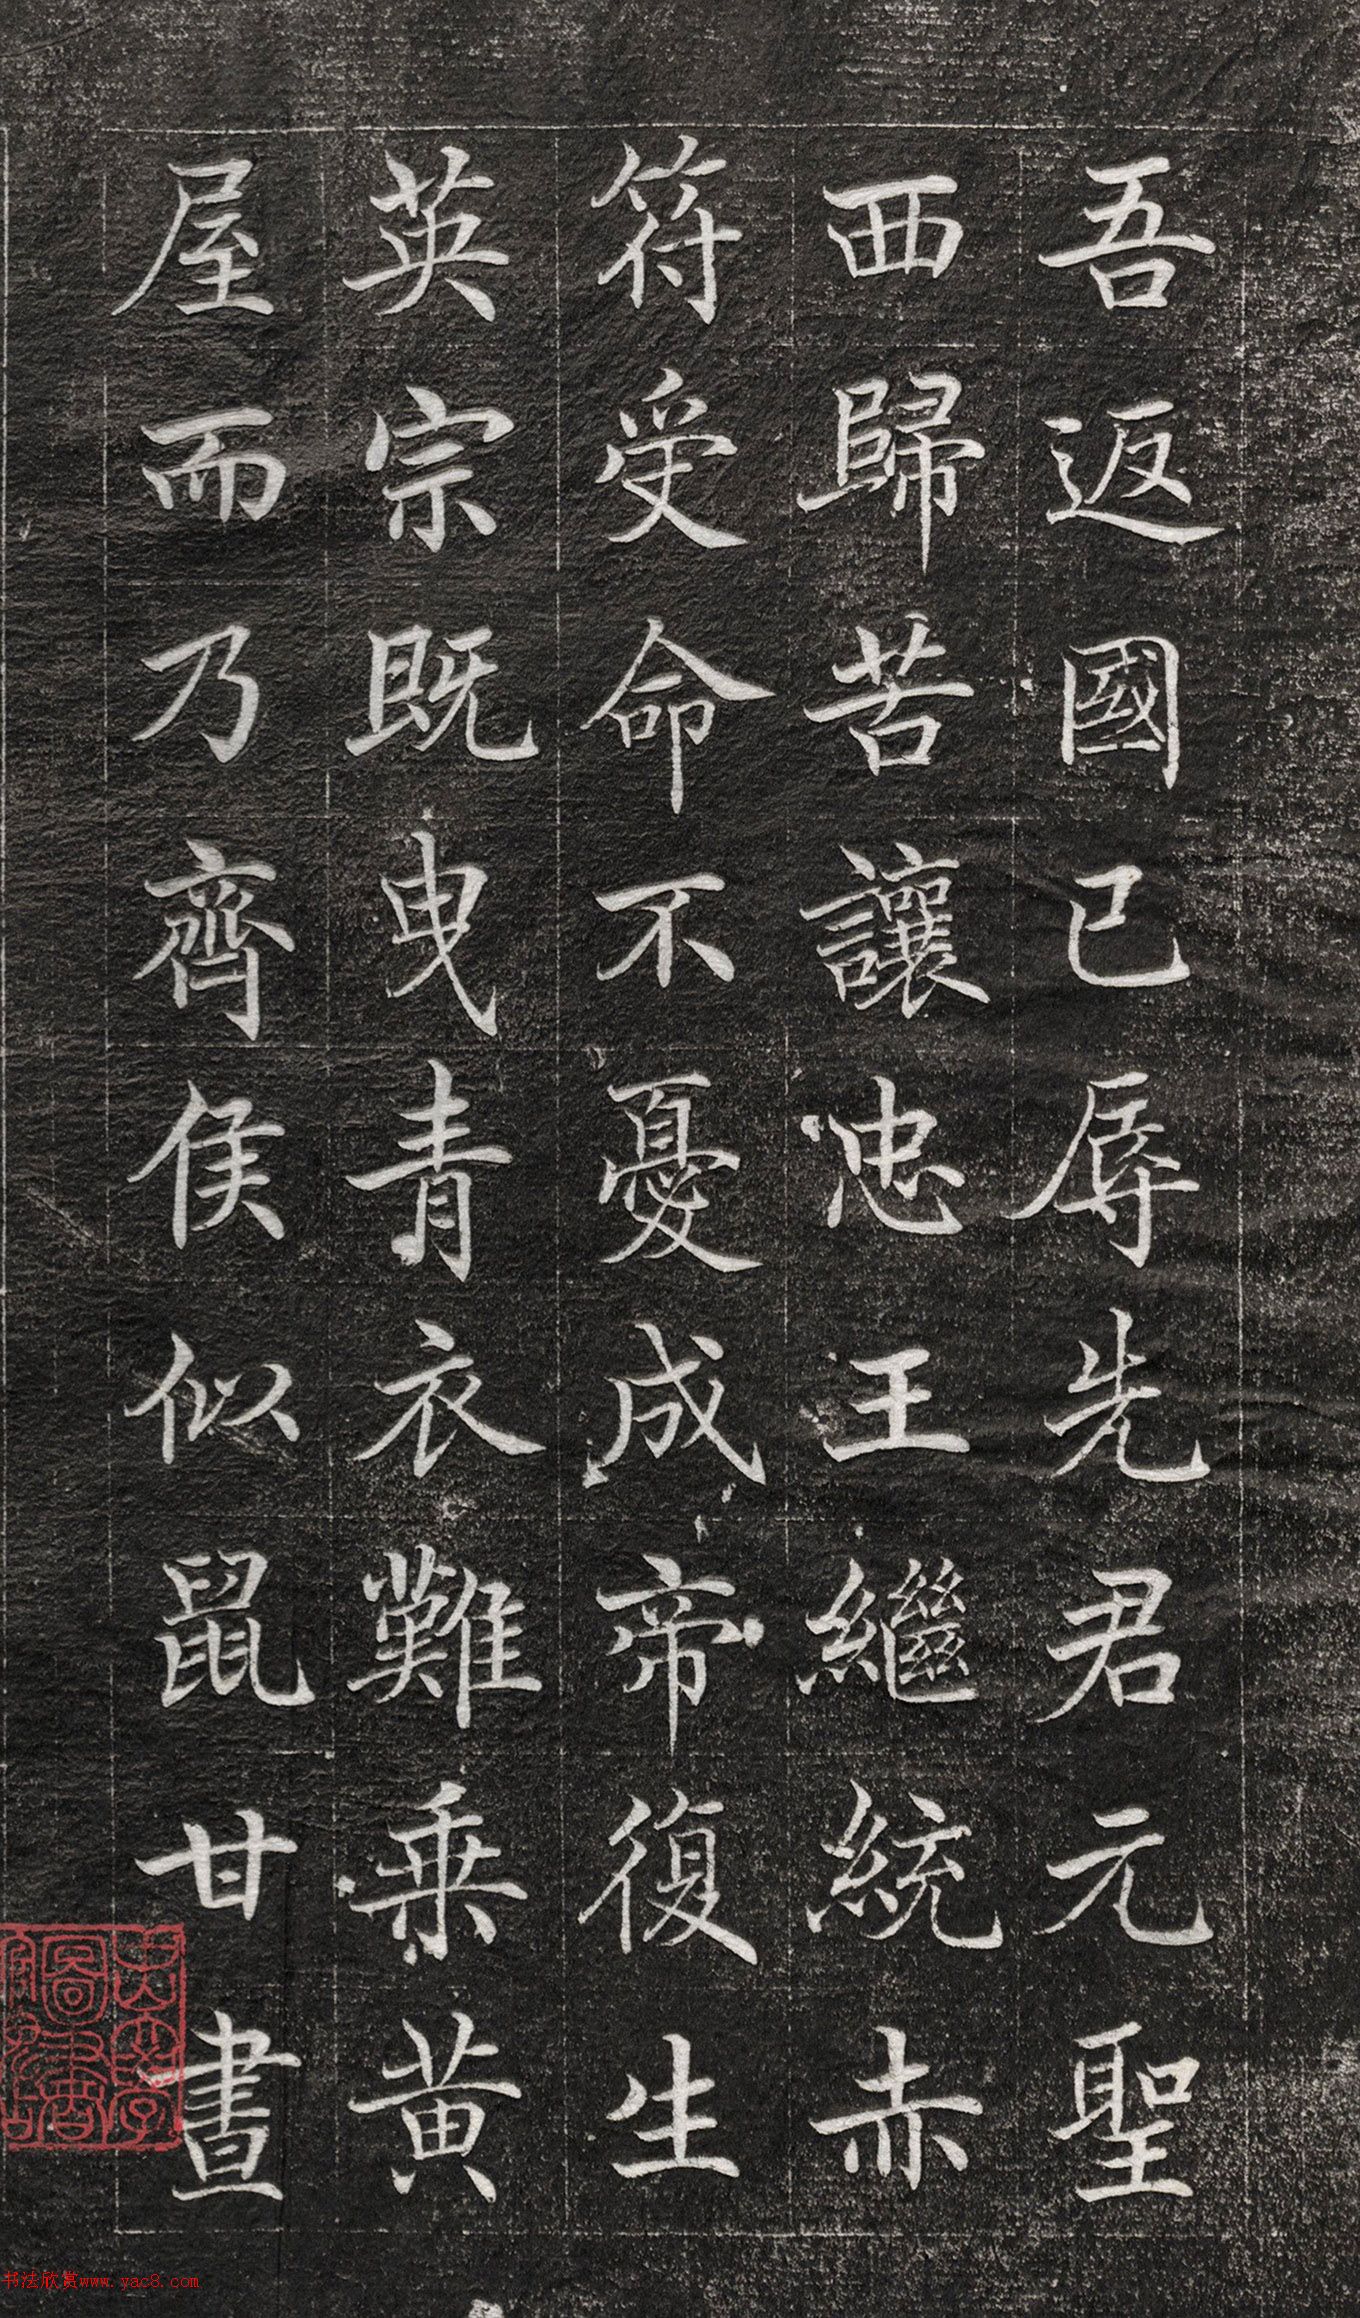 吾返國已辱先君元聖
西歸苦讓忠王繼統赤
符受命不憂成帝復生
英宗既曳青衣難乗黄
屋而乃齊侯似鼠甘晝
書法欣赏www.yac8.com